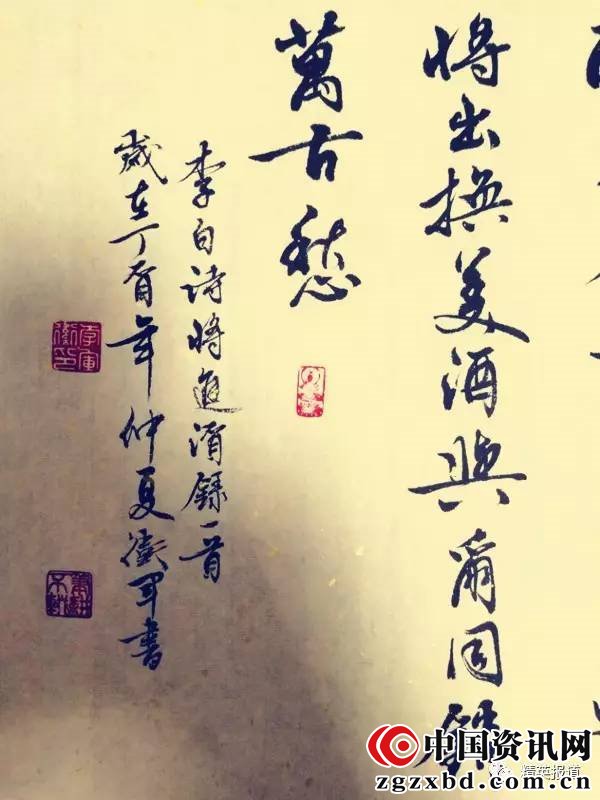 将出換美酒與爾同銷
萬古愁
李白诗将進酒錄一首
歲在丁酉年仲夏衛軍書
中国资讯网
zgzxbd.com.cn
精英报道